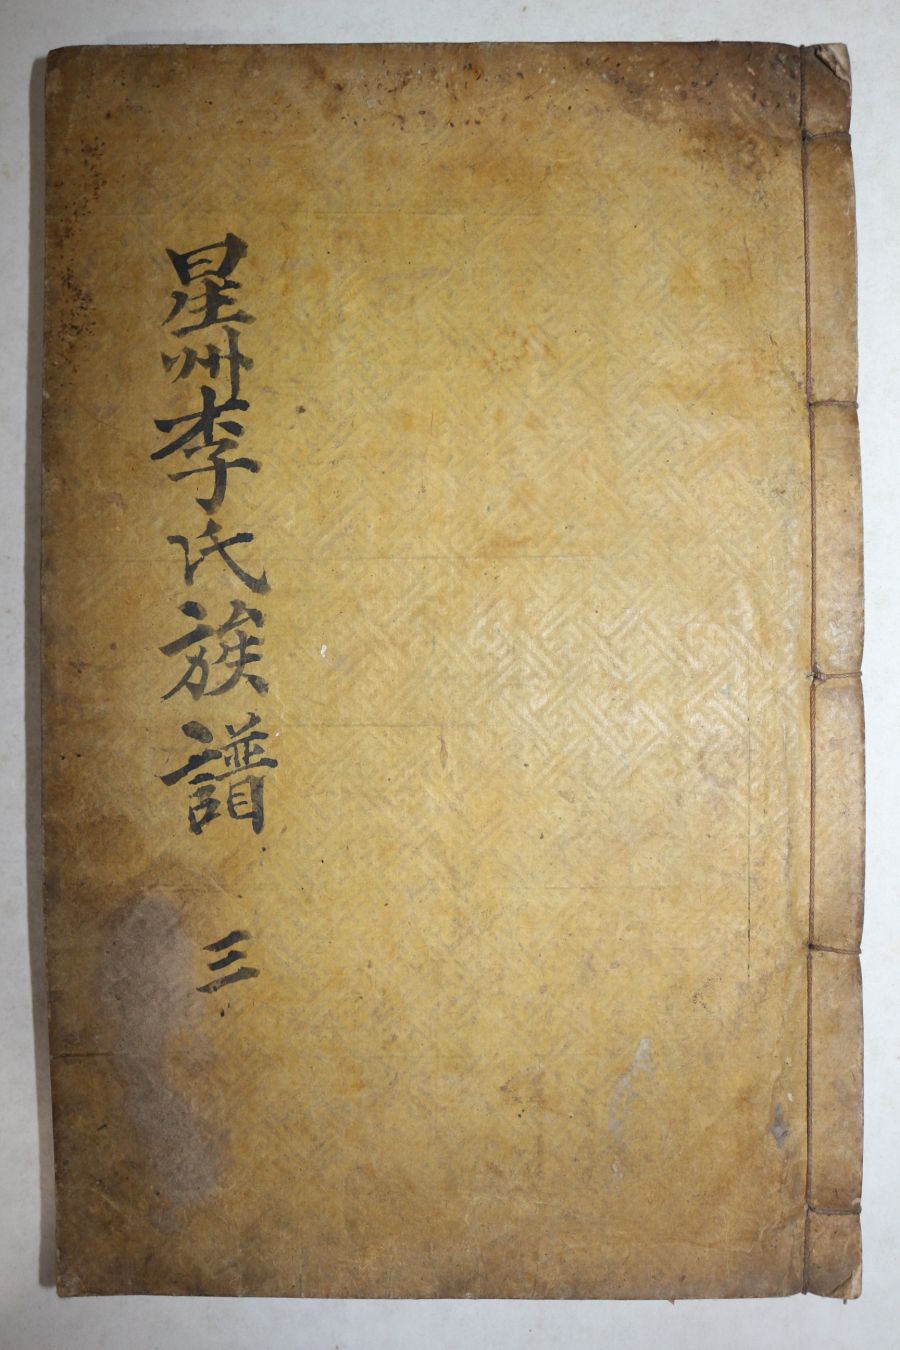 星州李氏族譜 三